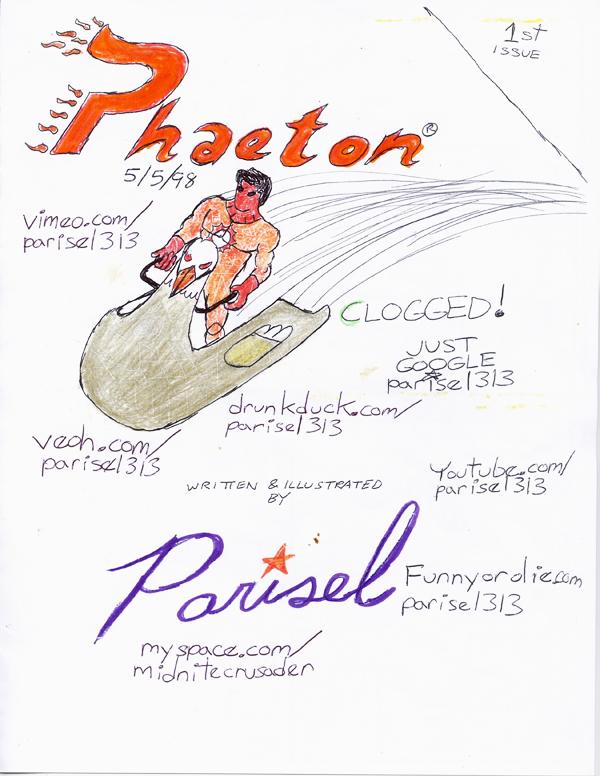 1st
ISSUE
Phaeton®
5/5/98
vimeo.com/
parisel313
CLOGGED!
JUST
GOOGLE
parisel313
drunkduck.com/
parisel313
veoh.com/
parisel313
Youtube.com/
parisel313
WRITTEN & ILLUSTRATED
BY
Parisel
Funnyordie.com
parisel313
myspace.com/
midnitecrusader